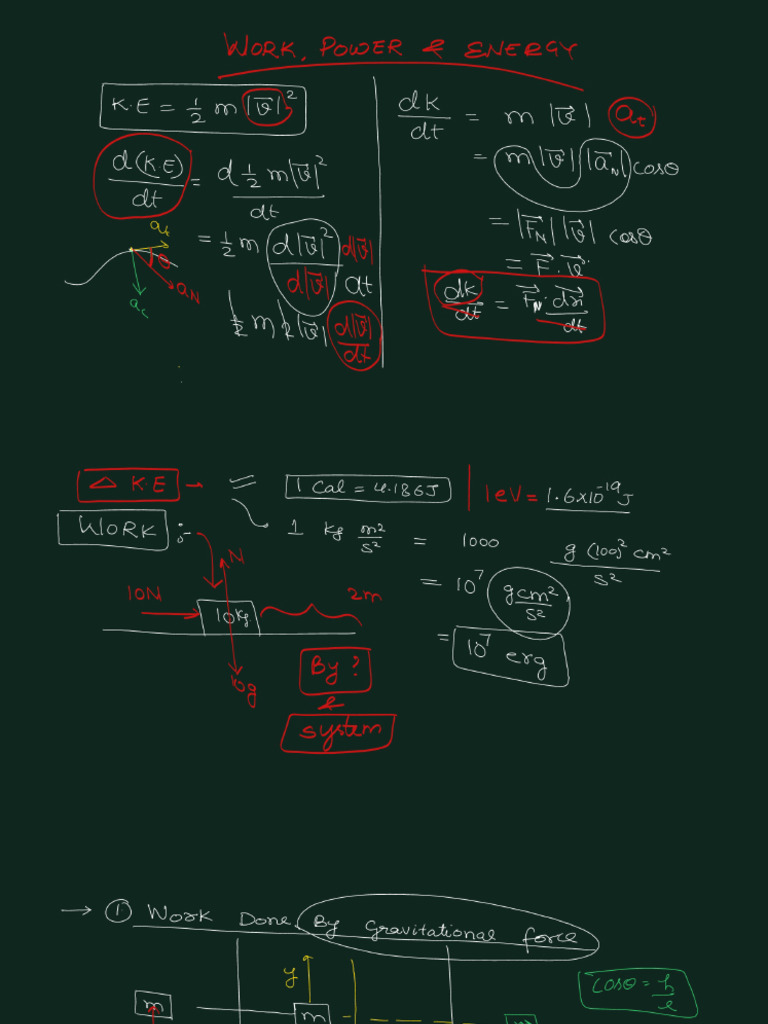 WORK, POWER & ENERGY
K.E = 1/2 m |v⃗|²
d(K.E)/dt = d 1/2 m|v⃗|²/dt
= 1/2 m d|v⃗|²/d|v⃗| d|v⃗|/dt
a_t
θ
a_N
a_c
1/2 m 2|v⃗| d|v⃗|/dt
dk/dt = m |v⃗| a_t
= m |v⃗| |a⃗_N| cosθ
= |F⃗_N| |v⃗| cosθ
= F⃗ . v⃗
dk/dt = F⃗_N . dx⃗/dt
Δ K.E
1 Cal = 4.186J
1eV = 1.6×10⁻¹⁹J
WORK :-
1 kg m²/s² = 1000 g (100)² cm²/s²
= 10⁷ gcm²/s²
= 10⁷ erg
N
10N
10kg
2m
10g
By ?
&
system
→ ① Work Done By Gravitational force
y
cosθ = h/l
m
m